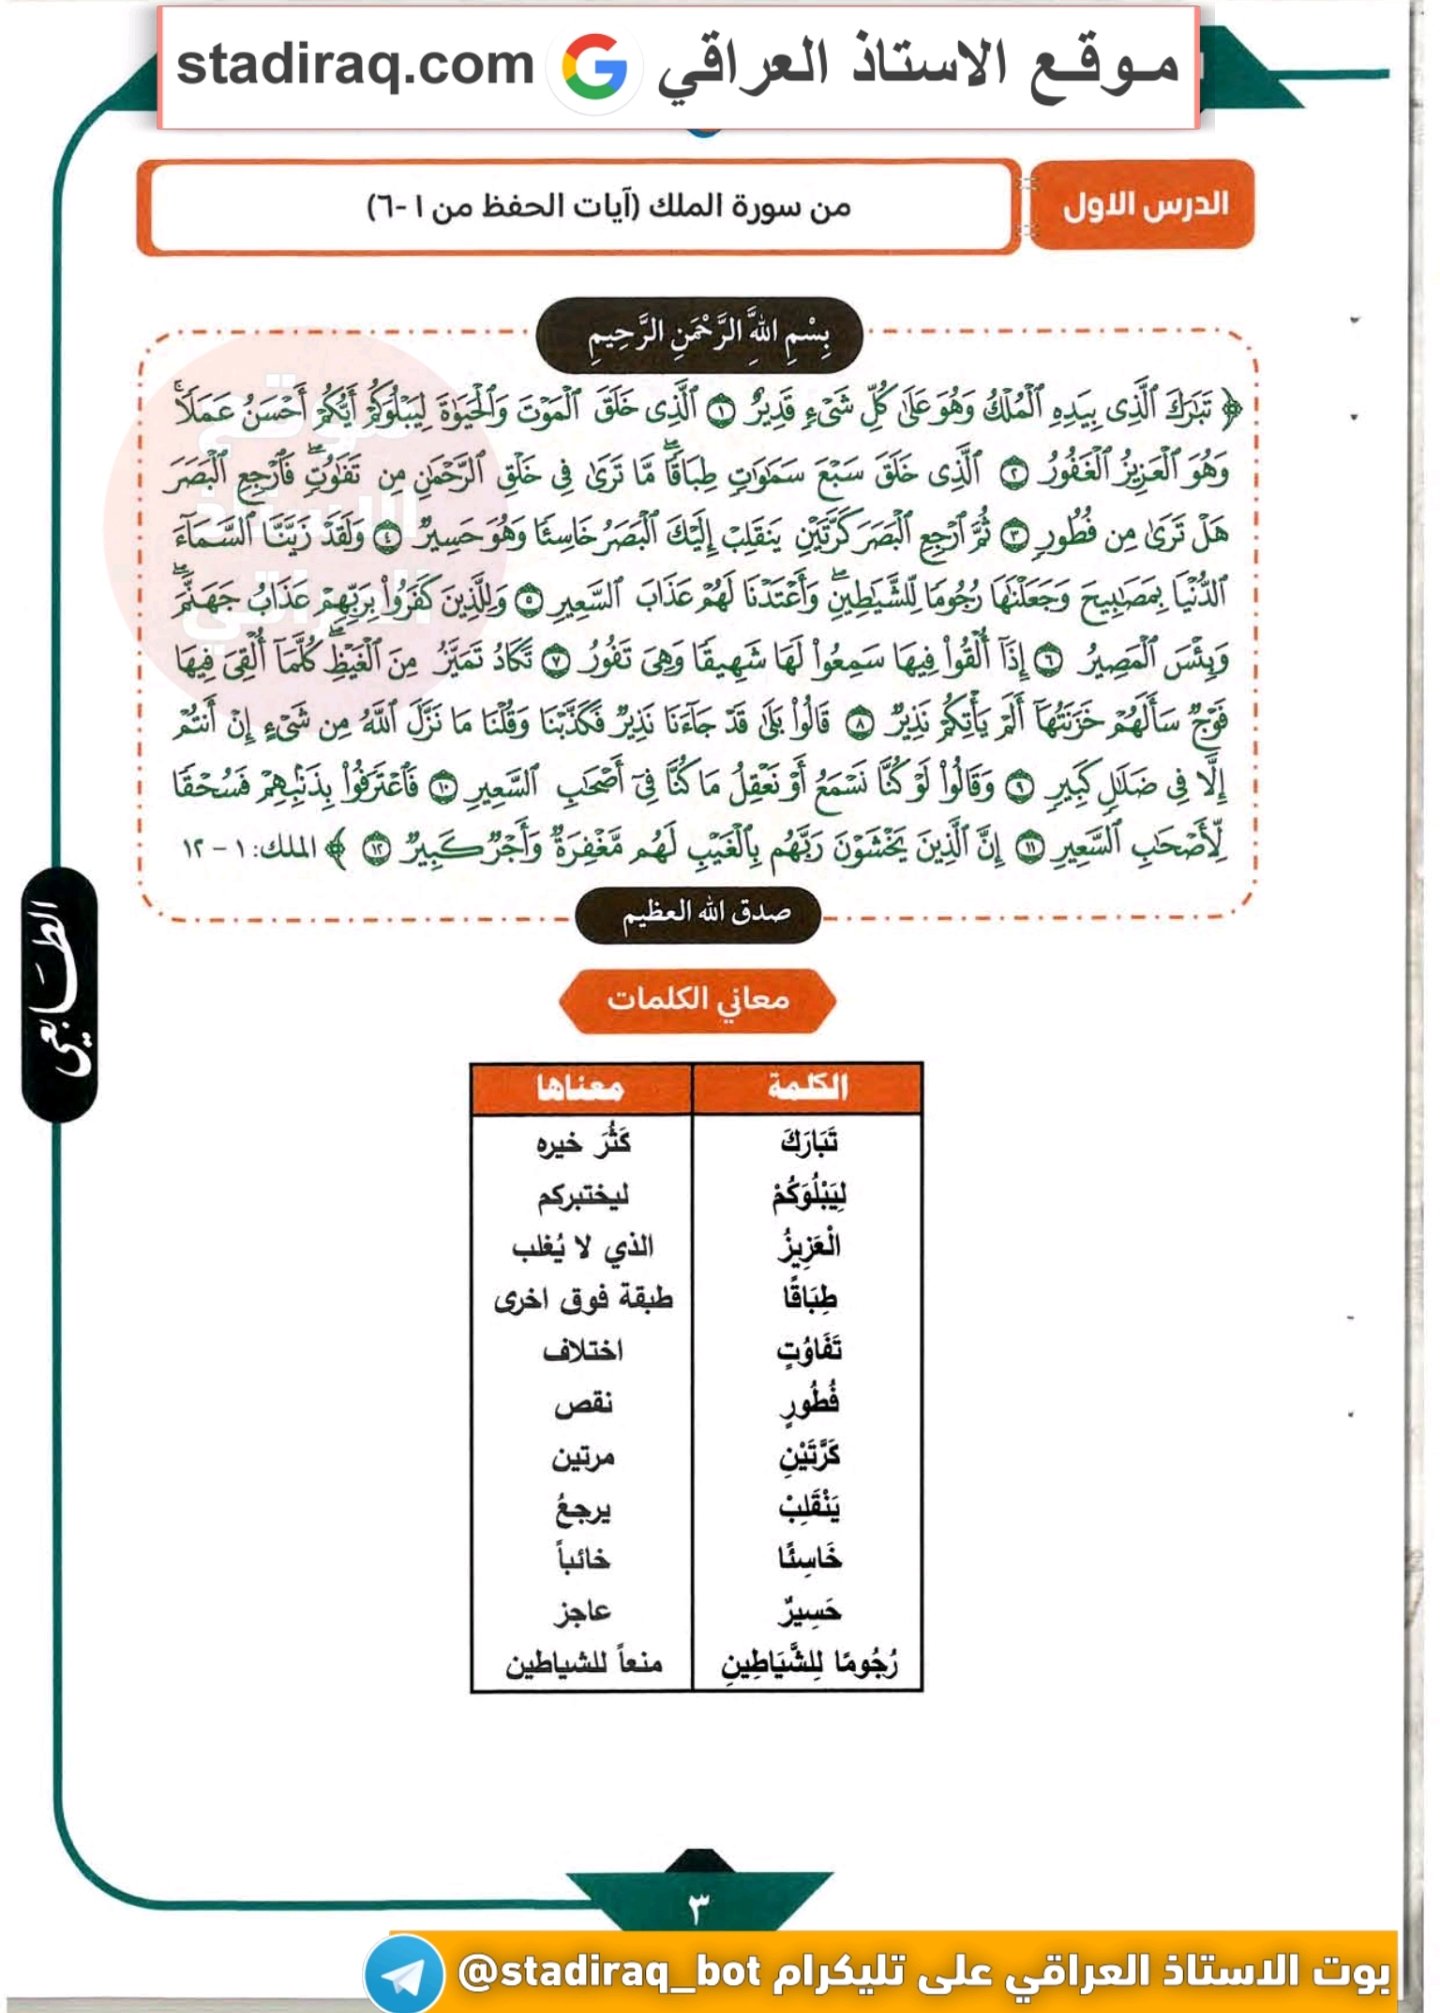 موقع الاستاذ العراقي stadiraq.com
الدرس الاول
من سورة الملك (آيات الحفظ من ١-٦)
بِسْمِ اللَّهِ الرَّحْمَنِ الرَّحِيمِ
﴿ تَبَٰرَكَ ٱلَّذِى بِيَدِهِ ٱلْمُلْكُ وَهُوَ عَلَىٰ كُلِّ شَىْءٍ قَدِيرٌ ١ ٱلَّذِى خَلَقَ ٱلْمَوْتَ وَٱلْحَيَوٰةَ لِيَبْلُوَكُمْ أَيُّكُمْ أَحْسَنُ عَمَلًا ۚ
وَهُوَ ٱلْعَزِيزُ ٱلْغَفُورُ ٢ ٱلَّذِى خَلَقَ سَبْعَ سَمَٰوَٰتٍ طِبَاقًا ۖ مَّا تَرَىٰ فِى خَلْقِ ٱلرَّحْمَٰنِ مِن تَفَٰوُتٍ ۖ فَٱرْجِعِ ٱلْبَصَرَ
هَلْ تَرَىٰ مِن فُطُورٍ ٣ ثُمَّ ٱرْجِعِ ٱلْبَصَرَ كَرَّتَيْنِ يَنقَلِبْ إِلَيْكَ ٱلْبَصَرُ خَاسِئًا وَهُوَ حَسِيرٌ ٤ وَلَقَدْ زَيَّنَّا ٱلسَّمَآءَ
ٱلدُّنْيَا بِمَصَٰبِيحَ وَجَعَلْنَٰهَا رُجُومًا لِّلشَّيَٰطِينِ ۖ وَأَعْتَدْنَا لَهُمْ عَذَابَ ٱلسَّعِيرِ ٥ وَلِلَّذِينَ كَفَرُوا۟ بِرَبِّهِمْ عَذَابُ جَهَنَّمَ ۖ
وَبِئْسَ ٱلْمَصِيرُ ٦ إِذَآ أُلْقُوا۟ فِيهَا سَمِعُوا۟ لَهَا شَهِيقًا وَهِىَ تَفُورُ ٧ تَكَادُ تَمَيَّزُ مِنَ ٱلْغَيْظِ ۖ كُلَّمَآ أُلْقِىَ فِيهَا
فَوْجٌ سَأَلَهُمْ خَزَنَتُهَآ أَلَمْ يَأْتِكُمْ نَذِيرٌ ٨ قَالُوا۟ بَلَىٰ قَدْ جَآءَنَا نَذِيرٌ فَكَذَّبْنَا وَقُلْنَا مَا نَزَّلَ ٱللَّهُ مِن شَىْءٍ إِنْ أَنتُمْ
إِلَّا فِى ضَلَٰلٍ كَبِيرٍ ٩ وَقَالُوا۟ لَوْ كُنَّا نَسْمَعُ أَوْ نَعْقِلُ مَا كُنَّا فِىٓ أَصْحَٰبِ ٱلسَّعِيرِ ١٠ فَٱعْتَرَفُوا۟ بِذَنۢبِهِمْ فَسُحْقًا
لِّأَصْحَٰبِ ٱلسَّعِيرِ ١١ إِنَّ ٱلَّذِينَ يَخْشَوْنَ رَبَّهُم بِٱلْغَيْبِ لَهُم مَّغْفِرَةٌ وَأَجْرٌ كَبِيرٌ ١٢ ﴾ الملك: ١ - ١٢
صدق الله العظيم
معاني الكلمات
الكلمة معناها
تَبَارَكَ كَثُرَ خيره
لِيَبْلُوَكُمْ ليختبركم
الْعَزِيزُ الذي لا يُغلب
طِبَاقًا طبقة فوق اخرى
تَفَاوُتٍ اختلاف
فُطُورٍ نقص
كَرَّتَيْنِ مرتين
يَنْقَلِبْ يرجعُ
خَاسِئًا خائباً
حَسِيرٌ عاجز
رُجُومًا لِلشَّيَاطِينِ منعاً للشياطين
الطابعي
موقع
الاستاذ
العراقي
٣
بوت الاستاذ العراقي على تليكرام @stadiraq_bot